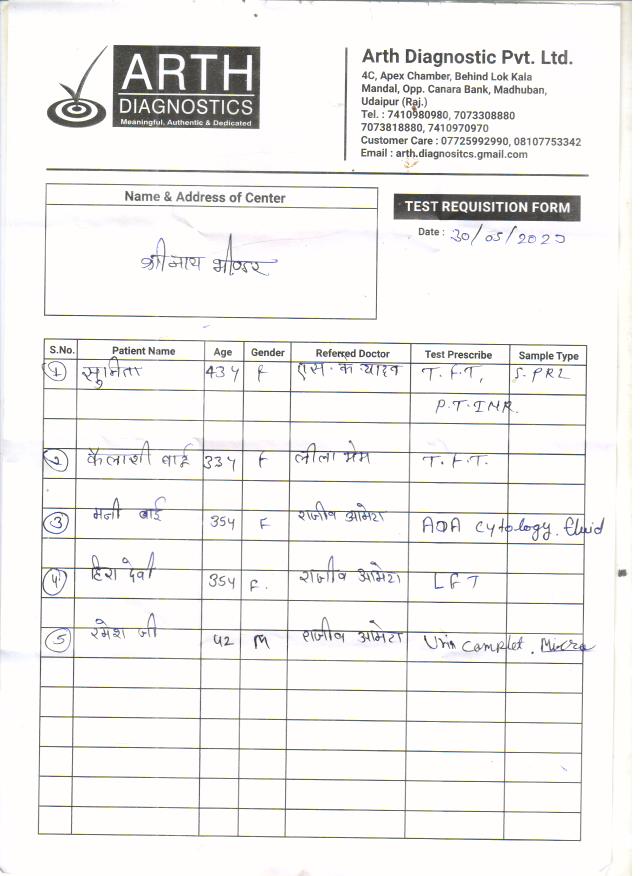 ARTH
DIAGNOSTICS
Meaningful, Authentic & Dedicated
Arth Diagnostic Pvt. Ltd.
4C, Apex Chamber, Behind Lok Kala
Mandal, Opp. Canara Bank, Madhuban,
Udaipur (Raj.)
Tel. : 7410980980, 7073308880
7073818880, 7410970970
Customer Care : 07725992990, 08107753342
Email : arth.diagnositcs.gmail.com
Name & Address of Center
श्रीनाथ भीण्डर
TEST REQUISITION FORM
Date : 30/05/2025
S.No. Patient Name Age Gender Referred Doctor Test Prescribe Sample Type
1 सुनिता 43Y F एस. के यादव T.F.T, S-PRL
P.T-INR.
2 कैलाशी बाई 33Y F लीला T.F.T.
3 मनी बाई 35Y F राजीव आमेटा ADA Cytology. fluid
4 हिरा देवी 35Y F. राजीव आमेटा LFT
5 रमेश जी 42 M राजीव आमेटा Urin Complet. Micro